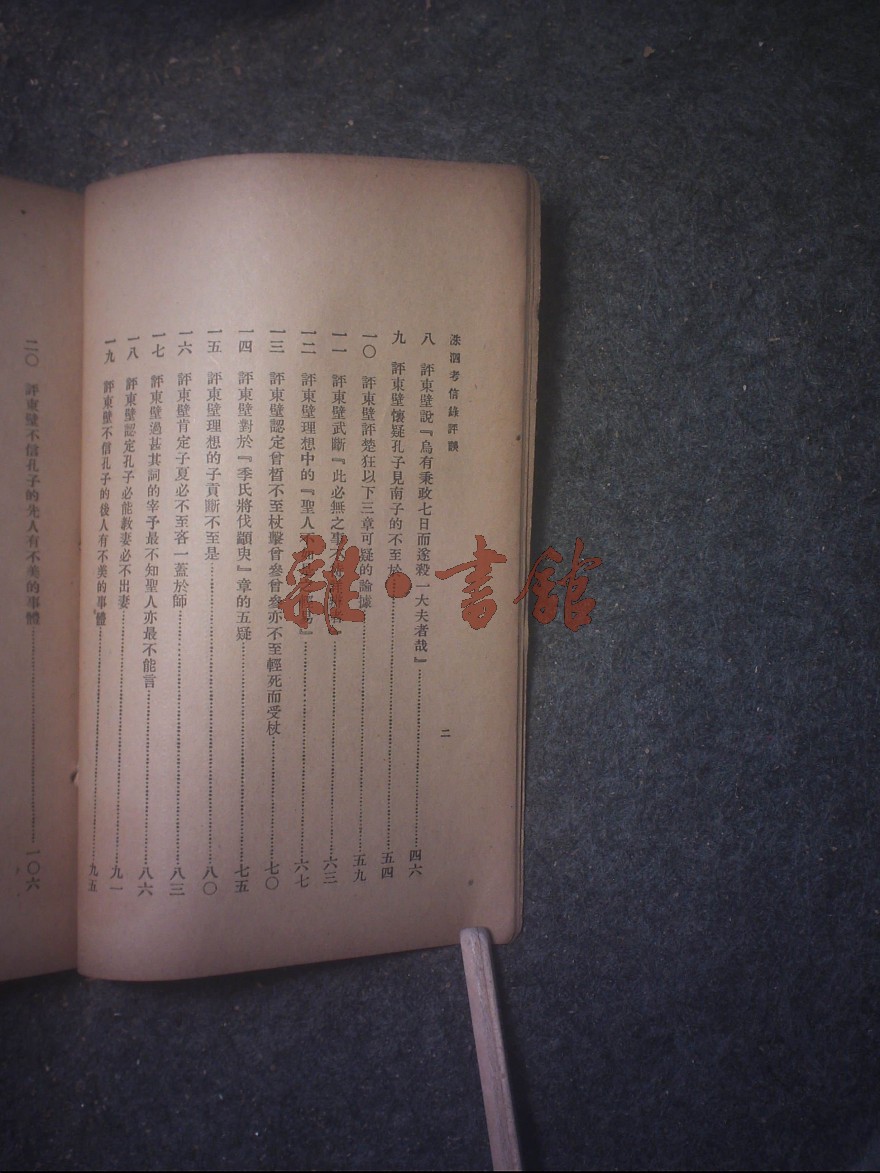 洙泗考信錄評誤
二
八 評東壁說『烏有秉政七日而遂殺一大夫者哉』……四六
九 評東壁懷疑孔子見南子的不至於……五四
一〇 評東壁評楚狂以下三章可疑的論據……五九
一一 評東壁武斷『此必無之事……六三
一二 評東壁理想中的『聖人……』……六七
一三 評東壁認定曾晳不至杖擊曾參曾參亦不至輕死而受杖……七〇
一四 評東壁對於『季氏將伐顓臾』章的五疑……七五
一五 評東壁理想的子貢斷不至是……八〇
一六 評東壁肯定子夏必不至吝一蓋於師……八三
一七 評東壁過甚其詞的宰予最不知聖人亦最不能言……八六
一八 評東壁認定孔子必能教妻必不出妻……九一
一九 評東壁不信孔子的後人有不美的事體……九五
二〇 評東壁不信孔子的先人有不美的事體……一〇六
雜·書館